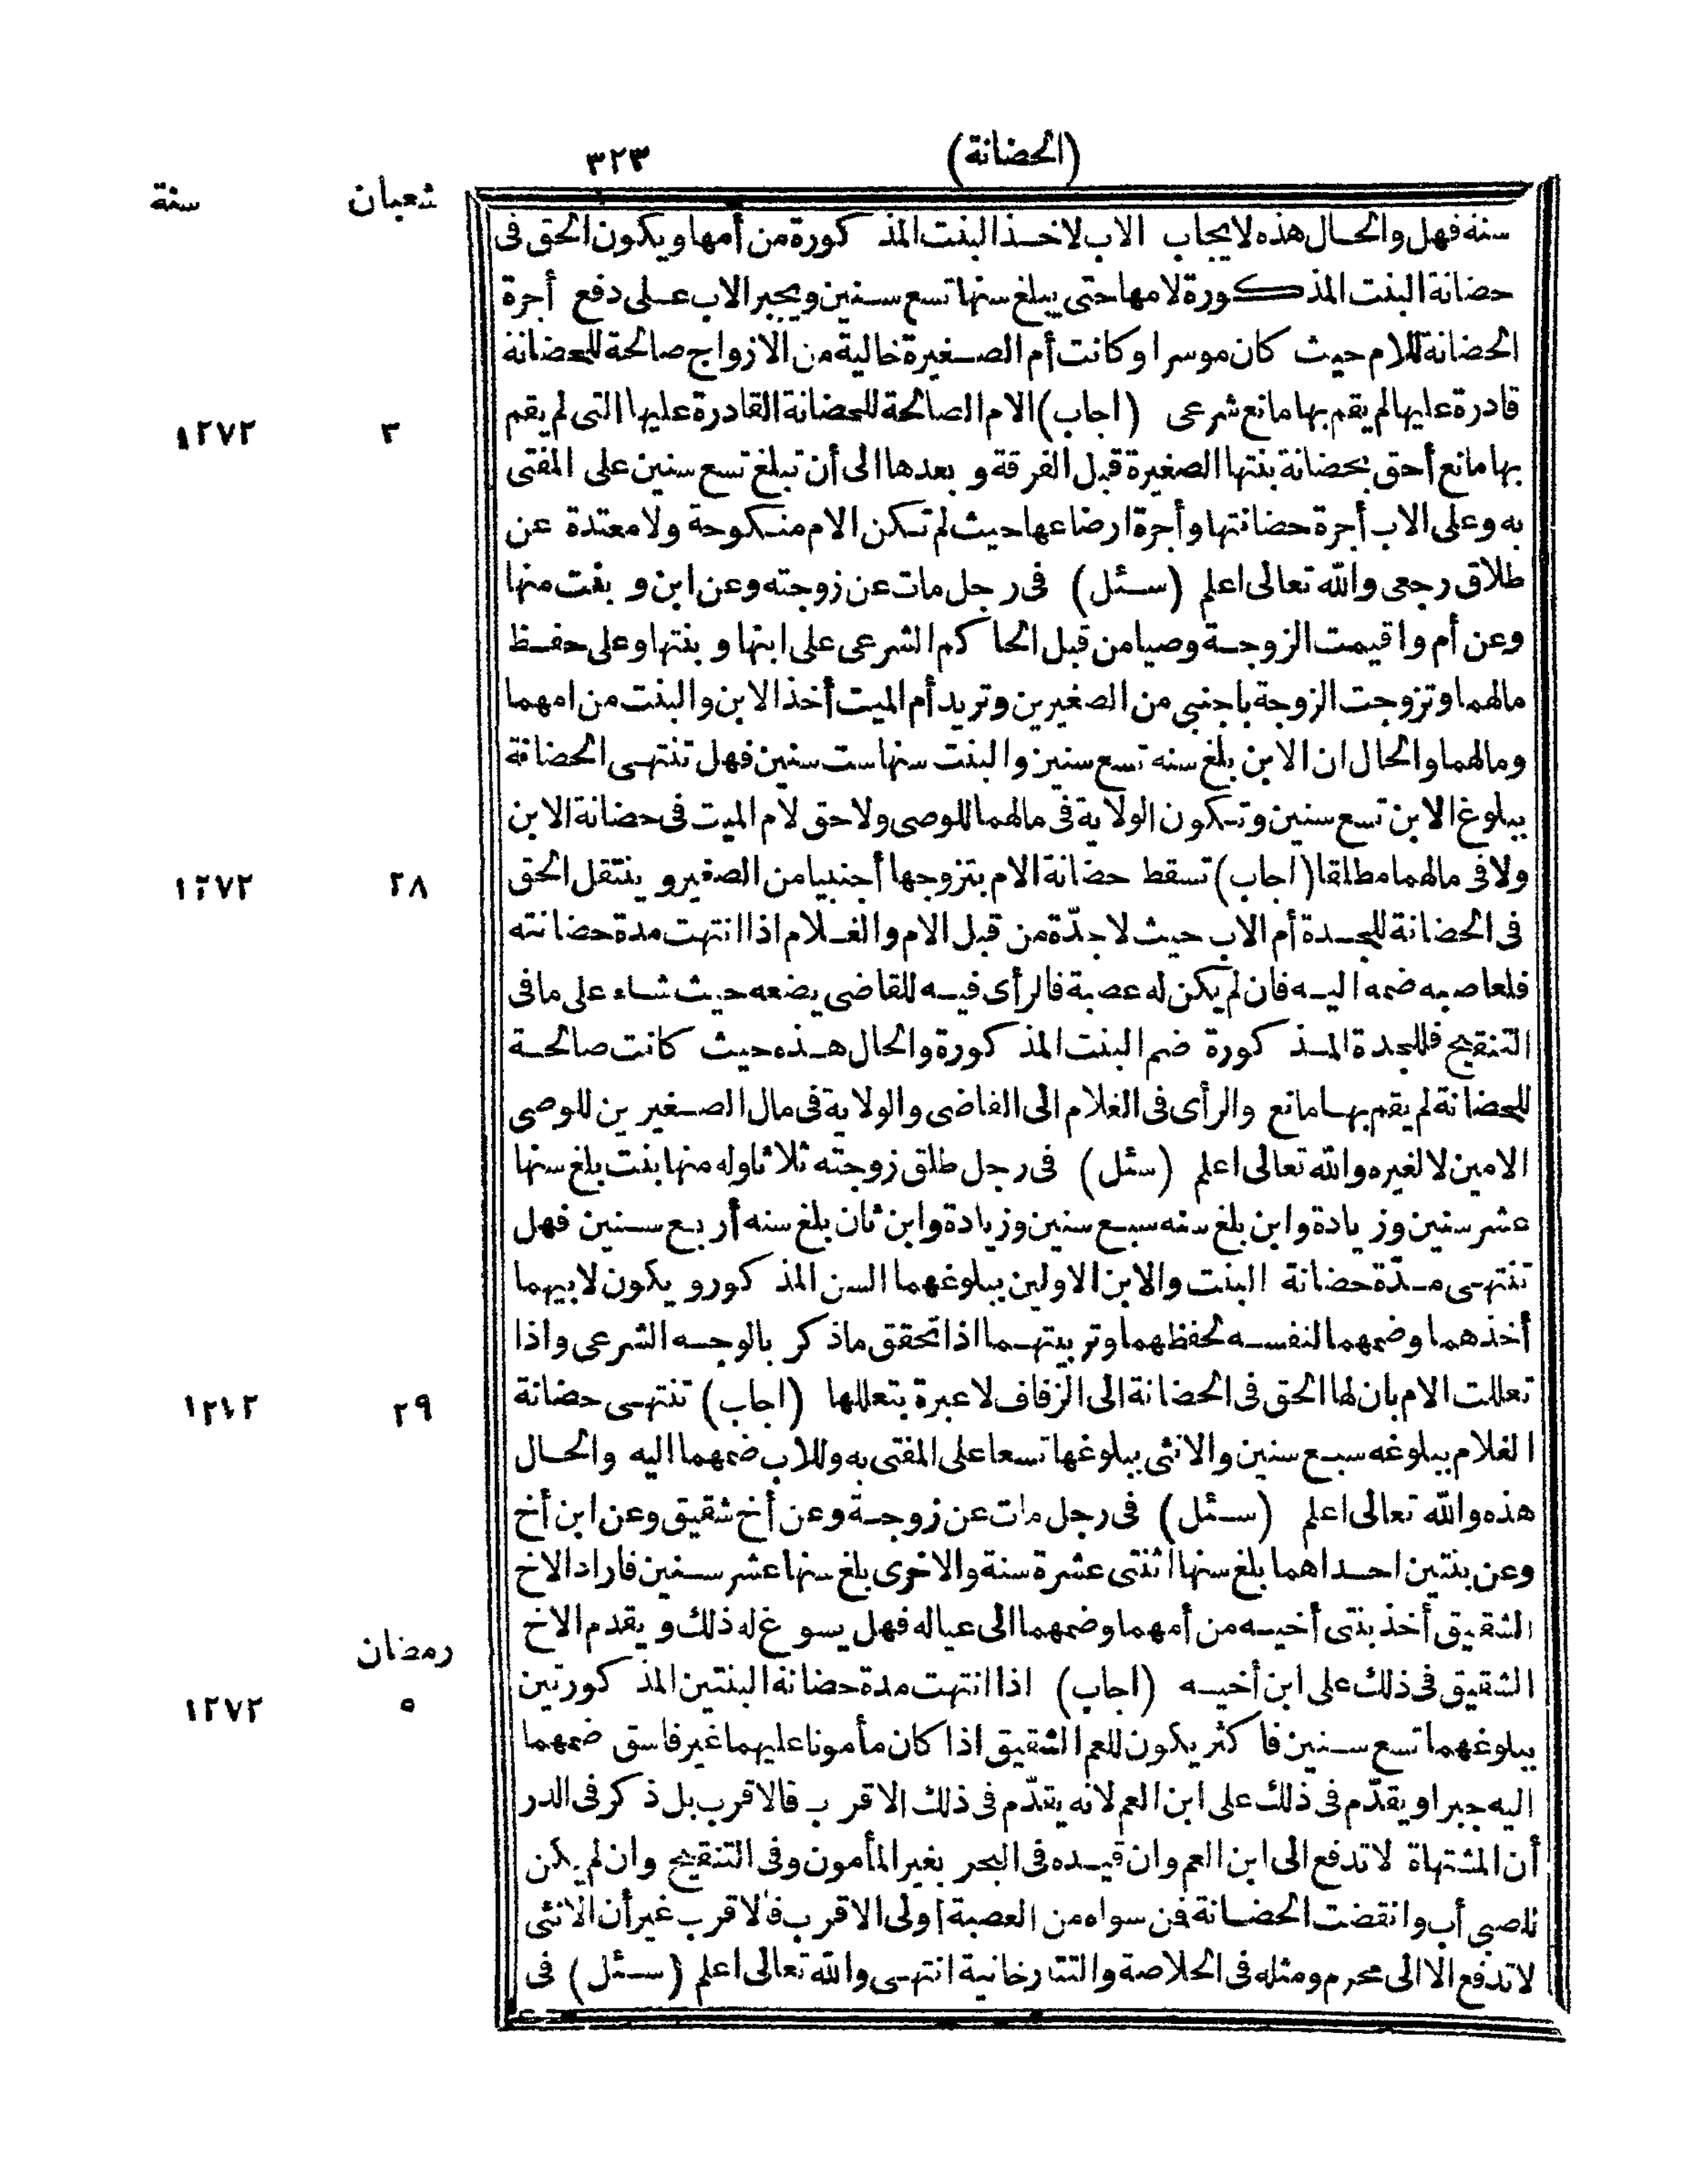 (الحضانة) ٣٢٣
شعبان سنة
سنة فهل والحال هذه لا يجاب الاب لاخذ البنت المذكورة من أمها ويكون الحق فى
حضانة البنت المذكورة لامها حتى يبلغ سنها تسع سنين ويجبر الاب على دفع أجرة
الحضانة للام حيث كان موسرا وكانت أم الصغيرة خالية من الازواج صالحة للحضانة
قادرة عليها لم يقم بها مانع شرعى (اجاب) الام الصالحة للحضانة القادرة عليها التى لم يقم ٣ ١٢٧٢
بها مانع أحق بحضانة بنتها الصغيرة قبل الفرقة وبعدها الى أن تبلغ تسع سنين على المفتى
به وعلى الاب أجرة حضانتها وأجرة ارضاعها حيث لم تكن الام منكوحة ولا معتدة عن
طلاق رجعى والله تعالى اعلم (سئل) فى رجل مات عن زوجته وعن ابن وبنت منها
وعن أم واقيمت الزوجة وصيا من قبل الحاكم الشرعى على ابنها وبنتها وعلى حفظ
مالهما وتزوجت الزوجة باجنبي من الصغيرين وتريد أم الميت أخذ الابن والبنت من امهما
ومالهما والحال ان الابن بلغ سنه تسع سنين والبنت سنها ست سنين فهل تنتهى الحضانة
ببلوغ الابن تسع سنين وتكون الولاية فى مالهما للوصى ولا حق لام الميت فى حضانة الابن
ولا فى مالهما مطلقا (اجاب) تسقط حضانة الام بتزوجها أجنبيا من الصغير وينتقل الحق ٢٨ ١٢٧٢
فى الحضانة للجدة أم الاب حيث لا جدّة من قبل الام والغلام اذا انتهت مدة حضانته
فلعاصبه ضمه اليه فان لم يكن له عصبة فالرأى فيه للقاضى يضعه حيث شاء على ما فى
التنقيح فللجدة المذكورة ضم البنت المذكورة والحال هذه حيث كانت صالحة
للحضانة لم يقم بها مانع والرأى فى الغلام الى القاضى والولاية فى مال الصغيرين للوصى
الامين لا لغيره والله تعالى اعلم (سئل) فى رجل طلق زوجته ثلاثا وله منها بنت بلغ سنها
عشر سنين وزيادة وابن بلغ سنه سبع سنين وزيادة وابن ثان بلغ سنه أربع سنين فهل
تنتهى مدّة حضانة البنت والابن الاولين ببلوغهما السن المذكور ويكون لابيهما
أخذهما وضمهما لنفسه لحفظهما وتربيتهما اذا تحقق ما ذكر بالوجه الشرعى واذا
تعللت الام بان لها الحق فى الحضانة الى الزفاف لا عبرة بتعللها (اجاب) تنتهى حضانة ٢٩ ١٢٧٢
الغلام ببلوغه سبع سنين والانثى ببلوغها تسعا على المفتى به وللاب ضمهما اليه والحال
هذه والله تعالى اعلم (سئل) فى رجل مات عن زوجة وعن أخ شقيق وعن ابن أخ
وعن بنتين احداهما بلغ سنها اثنتى عشرة سنة والاخرى بلغ سنها عشر سنين فاراد الاخ
الشقيق أخذ بنتى أخيه من أمهما وضمهما الى عياله فهل يسوغ له ذلك ويقدم الاخ
رمضان
الشقيق فى ذلك على ابن أخيه (اجاب) اذا انتهت مدة حضانة البنتين المذكورتين ٥ ١٢٧٢
ببلوغهما تسع سنين فاكثر يكون للعم الشقيق اذا كان مأمونا عليهما غير فاسق ضمهما
اليه جبرا ويقدّم فى ذلك على ابن العم لانه يقدّم فى ذلك الاقرب فالاقرب بل ذكر فى الدر
أن المشتهاة لا تدفع الى ابن العم وان قيده فى البحر بغير المأمون وفى التنقيح وان لم يكن
للصبي أب وانقضت الحضانة فمن سواه من العصبة أولى الاقرب فالاقرب غير أن الانثى
لا تدفع الا الى محرم ومثله فى الخلاصة والتتارخانية انتهى والله تعالى اعلم (سئل) فى